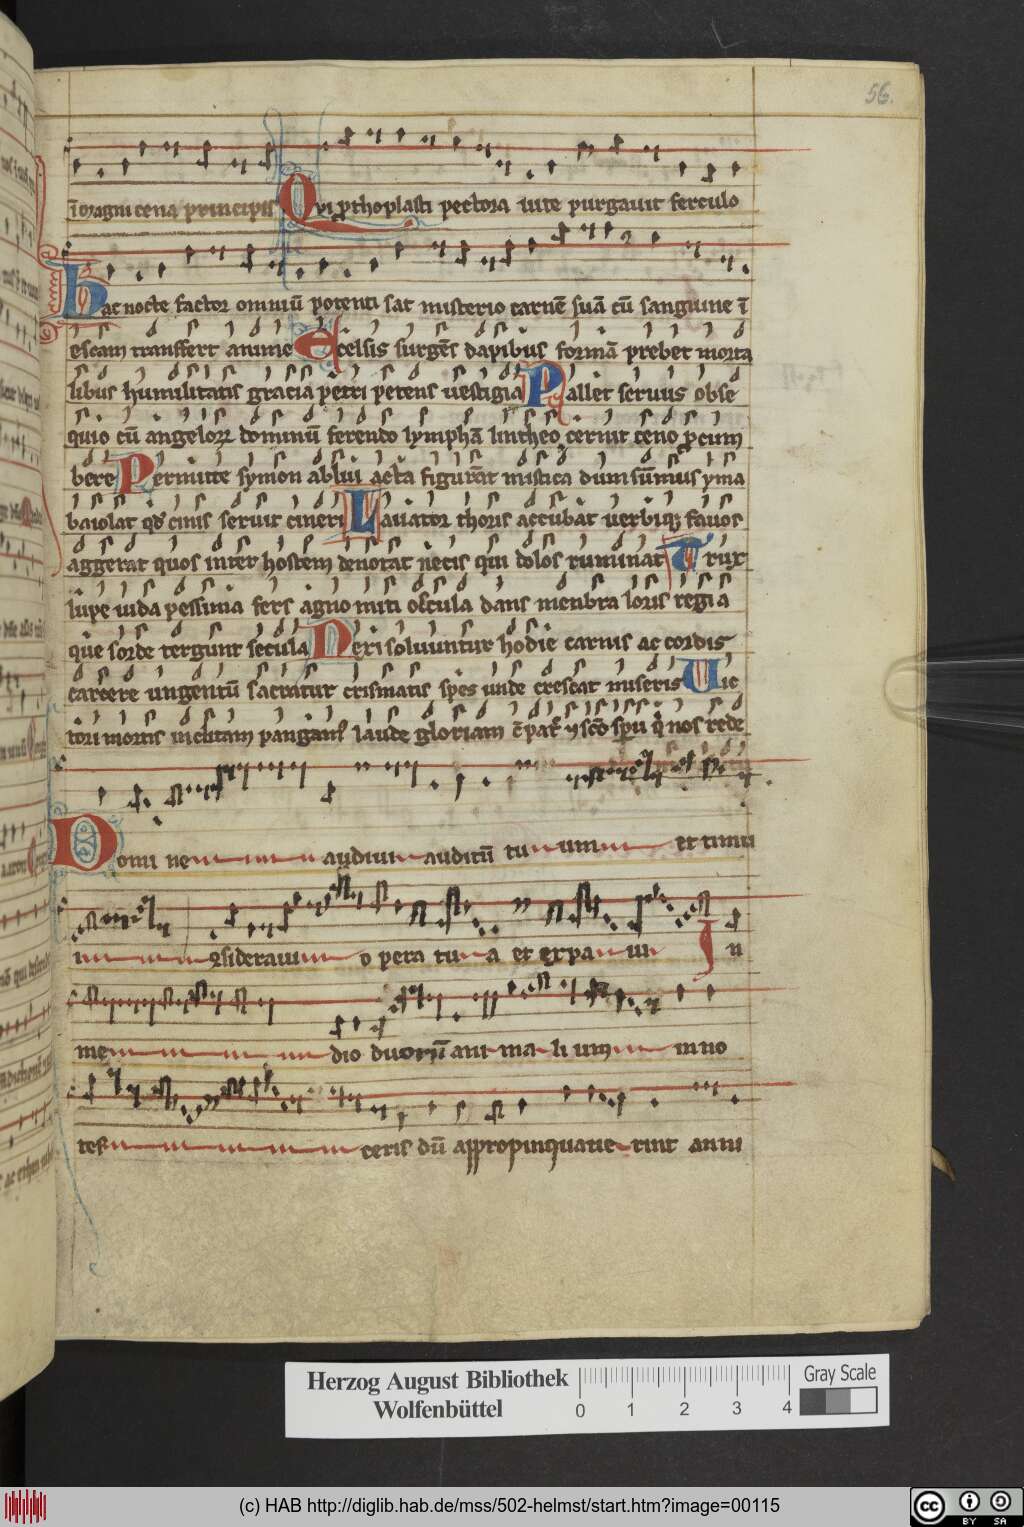 56.
ī magni cena principis Qui ꝓthoplasti pectora uite purgauit ferculo
Hac nocte factor omniū potenti sat misterio carnē suā cū sanguine ī
escam transfert anime Excelsis surgēs dapibus formā prebet morta
libus humilitatis gracia petri petens uestigia Pallet seruus obse
quio cū angeloꝝ dominū ferendo lymphā lintheo cernit ceno ꝓcum
bere Permitte symon ablui acta figurāt mistica dum sūmus yma
baiolat qd' cinis seruit cineri Lauator thoris accubat uerbiqꝫ fauos
aggerat quos inter hostem denotat necis qui dolos ruminat Trux
lupe iuda pessima fers agno miti oscula dans menbra loris regia
que sorde tergunt secula Nexi soluuntur hodie carnis ac cordis
carcere ungentū sacratur crismatis spes unde crescat miseris Uic
tori mortis inclitam pangam' laude gloriam
Domi ne audiui auditū tu um et timui
ꝯsideraui opera tu a et expa ui In
me dio duorū ani ma li um in no
tes ceris dū appropinquaue rint anni
Herzog August Bibliothek
Wolfenbüttel
0 1 2 3 4
Gray Scale
(c) HAB http://diglib.hab.de/mss/502-helmst/start.htm?image=00115
cc BY SA